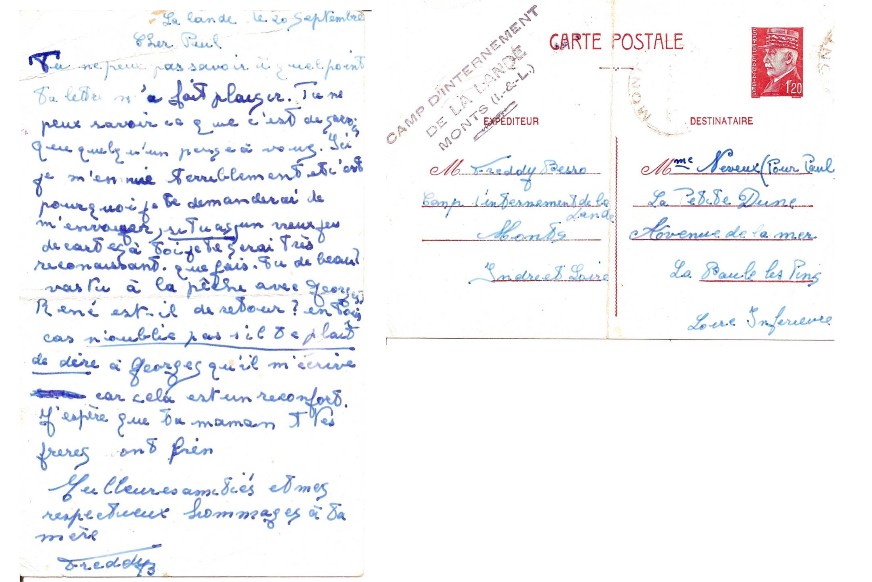 La lande le 20 Septembre
Cher Paul
Tu ne peux pas savoir à quel point
ta lettre m'a fait plaisir. Tu ne
peux savoir ce que c'est de savoir
que quelqu'un pense à vous. Ici
je m'ennuie terriblement et c'est
pourquoi je te demanderai de
m'envoyer, si tu as un vieux jeu
de cartes à toi je te serai très
reconaissant. que fais-tu de beau?
vas tu à la pêche avec Georges
René est-il de retour? en tous
cas n'oublie pas s'il te plait
de dire à Georges qu'il m'écrive
car cela est un reconfort.
J'espère que ta maman tes
freres ont bien
Meilleures amitiés et mes
respectueux hommages à ta
mère
Freddy B
CAMP D'INTERNEMENT
DE LA LANDE
MONTS (I.-&-L.)
CARTE POSTALE
1f20
EXPÉDITEUR
M Freddy Besso
Camp d'internement de la
Lande
Monts
Indre et Loire
DESTINATAIRE
Mme Neveux (Pour Paul
La Petite Dune
Avenue de la mer
La Baule les Pins
Loire Inferieure